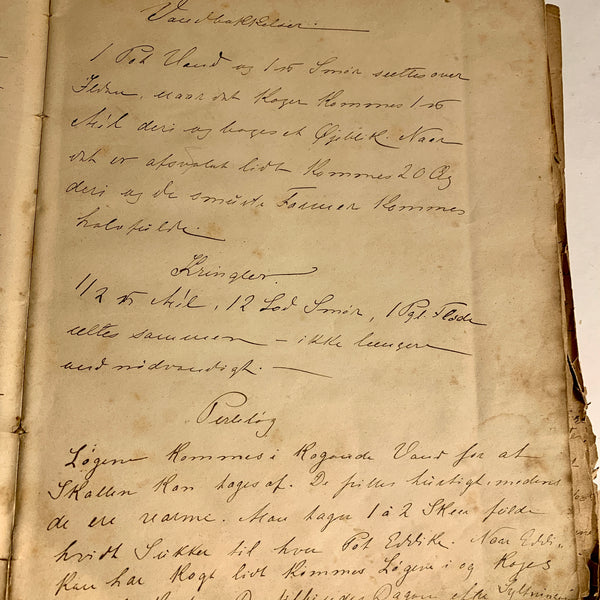 Vandbakkelser.
1 Pot Vand og 1 ℔ Smør sættes over
Ilden, naar det koger kommes 1 ℔
Mél deri og bages et Øjeblik. Naar
det er afsvalet lidt kommes 20 Æg
deri og de smurte Former kommes
halvfulde.
Kringler.
1/2 ℔ Mél, 12 Lod Smør, 1 Pgl. Fløde
æltes sammen – ikke længere
end nødvendigt. —
Perleløg
Løgene kommes i kogende Vand for at
Skallen kan tages af. De pilles hurtigt, medens
de ere varme. Man tager 1 à 2 Skeer fulde
hvidt Sukker til hver Pot Eddike. Naar Eddi-
ken har kogt lidt kommes Løgene i og koges
Dagen efter